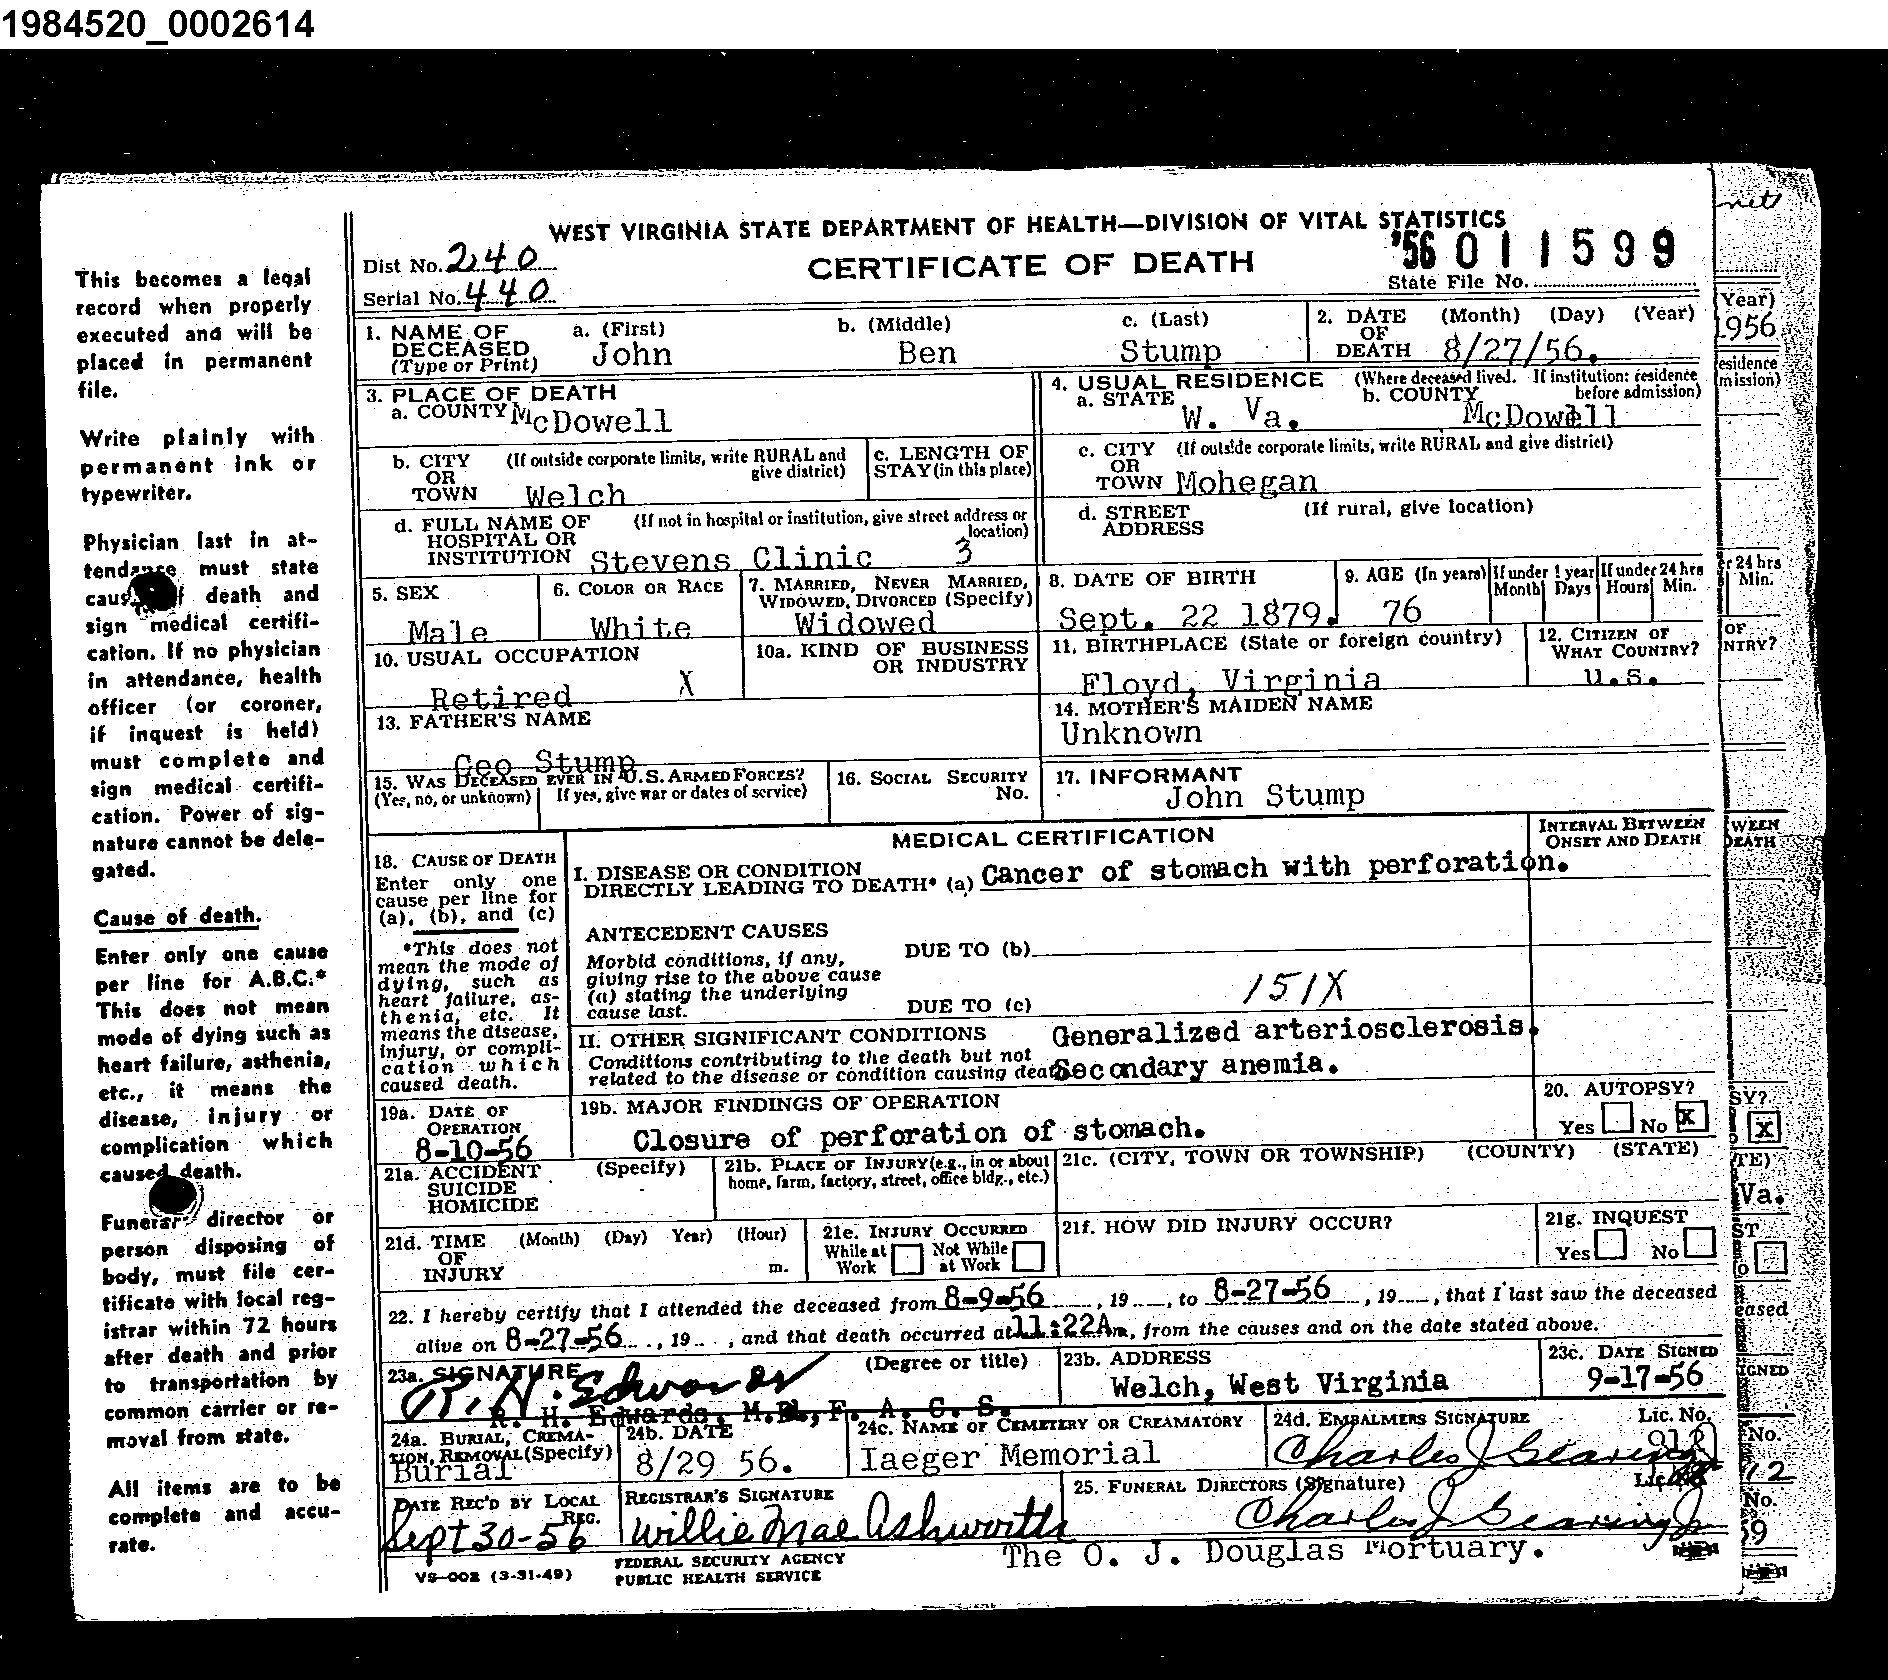 1984520_0002614
This becomes a legal
record when properly
executed and will be
placed in permanent
file.
Write plainly with
permanent ink or
typewriter.
Physician last in at-
tendance must state
cause of death and
sign medical certifi-
cation. If no physician
in attendance, health
officer (or coroner,
if inquest is held)
must complete and
sign medical certifi-
cation. Power of sig-
nature cannot be dele-
gated.
Cause of death.
Enter only one cause
per line for A.B.C.*
This does not mean
mode of dying such as
heart failure, asthenia,
etc., it means the
disease, injury or
complication which
caused death.
Funeral director or
person disposing of
body, must file cer-
tificate with local reg-
istrar within 72 hours
after death and prior
to transportation by
common carrier or re-
moval from state.
All items are to be
complete and accu-
rate.
WEST VIRGINIA STATE DEPARTMENT OF HEALTH—DIVISION OF VITAL STATISTICS
Dist No. 240
CERTIFICATE OF DEATH
'56 011599
Serial No. 440
State File No.
1. NAME OF DECEASED (Type or Print)
a. (First) John
b. (Middle) Ben
c. (Last) Stump
2. DATE OF DEATH (Month) (Day) (Year) 8/27/56.
3. PLACE OF DEATH
a. COUNTY McDowell
4. USUAL RESIDENCE (Where deceased lived. If institution: residence before admission)
a. STATE W. Va.
b. COUNTY McDowell
b. CITY OR TOWN (If outside corporate limits, write RURAL and give district) Welch
c. LENGTH OF STAY (in this place)
c. CITY OR TOWN (If outside corporate limits, write RURAL and give district) Mohegan
d. FULL NAME OF HOSPITAL OR INSTITUTION (If not in hospital or institution, give street address or location) Stevens Clinic 3
d. STREET ADDRESS (If rural, give location)
5. SEX Male
6. COLOR OR RACE White
7. MARRIED, NEVER MARRIED, WIDOWED, DIVORCED (Specify) Widowed
8. DATE OF BIRTH Sept. 22 1879.
9. AGE (In years) 76
If under 1 year Month Days
If under 24 hrs Hours Min.
10. USUAL OCCUPATION Retired X
10a. KIND OF BUSINESS OR INDUSTRY
11. BIRTHPLACE (State or foreign country) Floyd, Virginia
12. CITIZEN OF WHAT COUNTRY? U.S.
13. FATHER'S NAME Geo Stump
14. MOTHER'S MAIDEN NAME Unknown
15. WAS DECEASED EVER IN U.S. ARMED FORCES?
(Yes, no, or unknown) If yes, give war or dates of service)
16. SOCIAL SECURITY No.
17. INFORMANT John Stump
MEDICAL CERTIFICATION
INTERVAL BETWEEN ONSET AND DEATH
18. CAUSE OF DEATH
Enter only one
cause per line for
(a), (b), and (c)
*This does not
mean the mode of
dying, such as
heart failure, as-
thenia, etc. It
means the disease,
injury, or compli-
cation which
caused death.
I. DISEASE OR CONDITION
DIRECTLY LEADING TO DEATH* (a) Cancer of stomach with perforation.
ANTECEDENT CAUSES
Morbid conditions, if any,
giving rise to the above cause
(a) stating the underlying
cause last.
DUE TO (b)
151X
DUE TO (c)
II. OTHER SIGNIFICANT CONDITIONS Generalized arteriosclerosis.
Conditions contributing to the death but not
related to the disease or condition causing death. Secondary anemia.
19a. DATE OF OPERATION 8-10-56
19b. MAJOR FINDINGS OF OPERATION
Closure of perforation of stomach.
20. AUTOPSY?
Yes No X
21a. ACCIDENT SUICIDE HOMICIDE (Specify)
21b. PLACE OF INJURY (e.g., in or about home, farm, factory, street, office bldg., etc.)
21c. (CITY, TOWN OR TOWNSHIP) (COUNTY) (STATE)
21d. TIME OF INJURY (Month) (Day) Year) (Hour) m.
21e. INJURY OCCURRED
While at Work Not While at Work
21f. HOW DID INJURY OCCUR?
21g. INQUEST
Yes No
22. I hereby certify that I attended the deceased from 8-9-56, 19, to 8-27-56, 19, that I last saw the deceased
alive on 8-27-56, 19, and that death occurred at 11:22A m., from the causes and on the date stated above.
23a. SIGNATURE (Degree or title)
R. H. Edwards
R. H. Edwards, M.D., F. A. C. S.
23b. ADDRESS Welch, West Virginia
23c. DATE SIGNED 9-17-56
24a. BURIAL, CREMA-
TION, REMOVAL (Specify) Burial
24b. DATE 8/29 56.
24c. NAME OF CEMETERY OR CREAMATORY Iaeger Memorial
24d. EMBALMERS SIGNATURE Lic. No.
Charles J Gearing
DATE REC'D BY LOCAL REG. Sept 30-56
REGISTRAR'S SIGNATURE Willie Mae Ashworth
25. FUNERAL DIRECTORS (Signature)
Charles J Gearing Jr
The O. J. Douglas Mortuary.
VS-002 (3-31-49)
FEDERAL SECURITY AGENCY
PUBLIC HEALTH SERVICE
Year)
1956
esidence
mission)
24 hrs
Min.
OF
NTRY?
WEEN
DEATH
SY?
X
TE)
Va.
ST
eased
IGNED
No.
12
No.
59